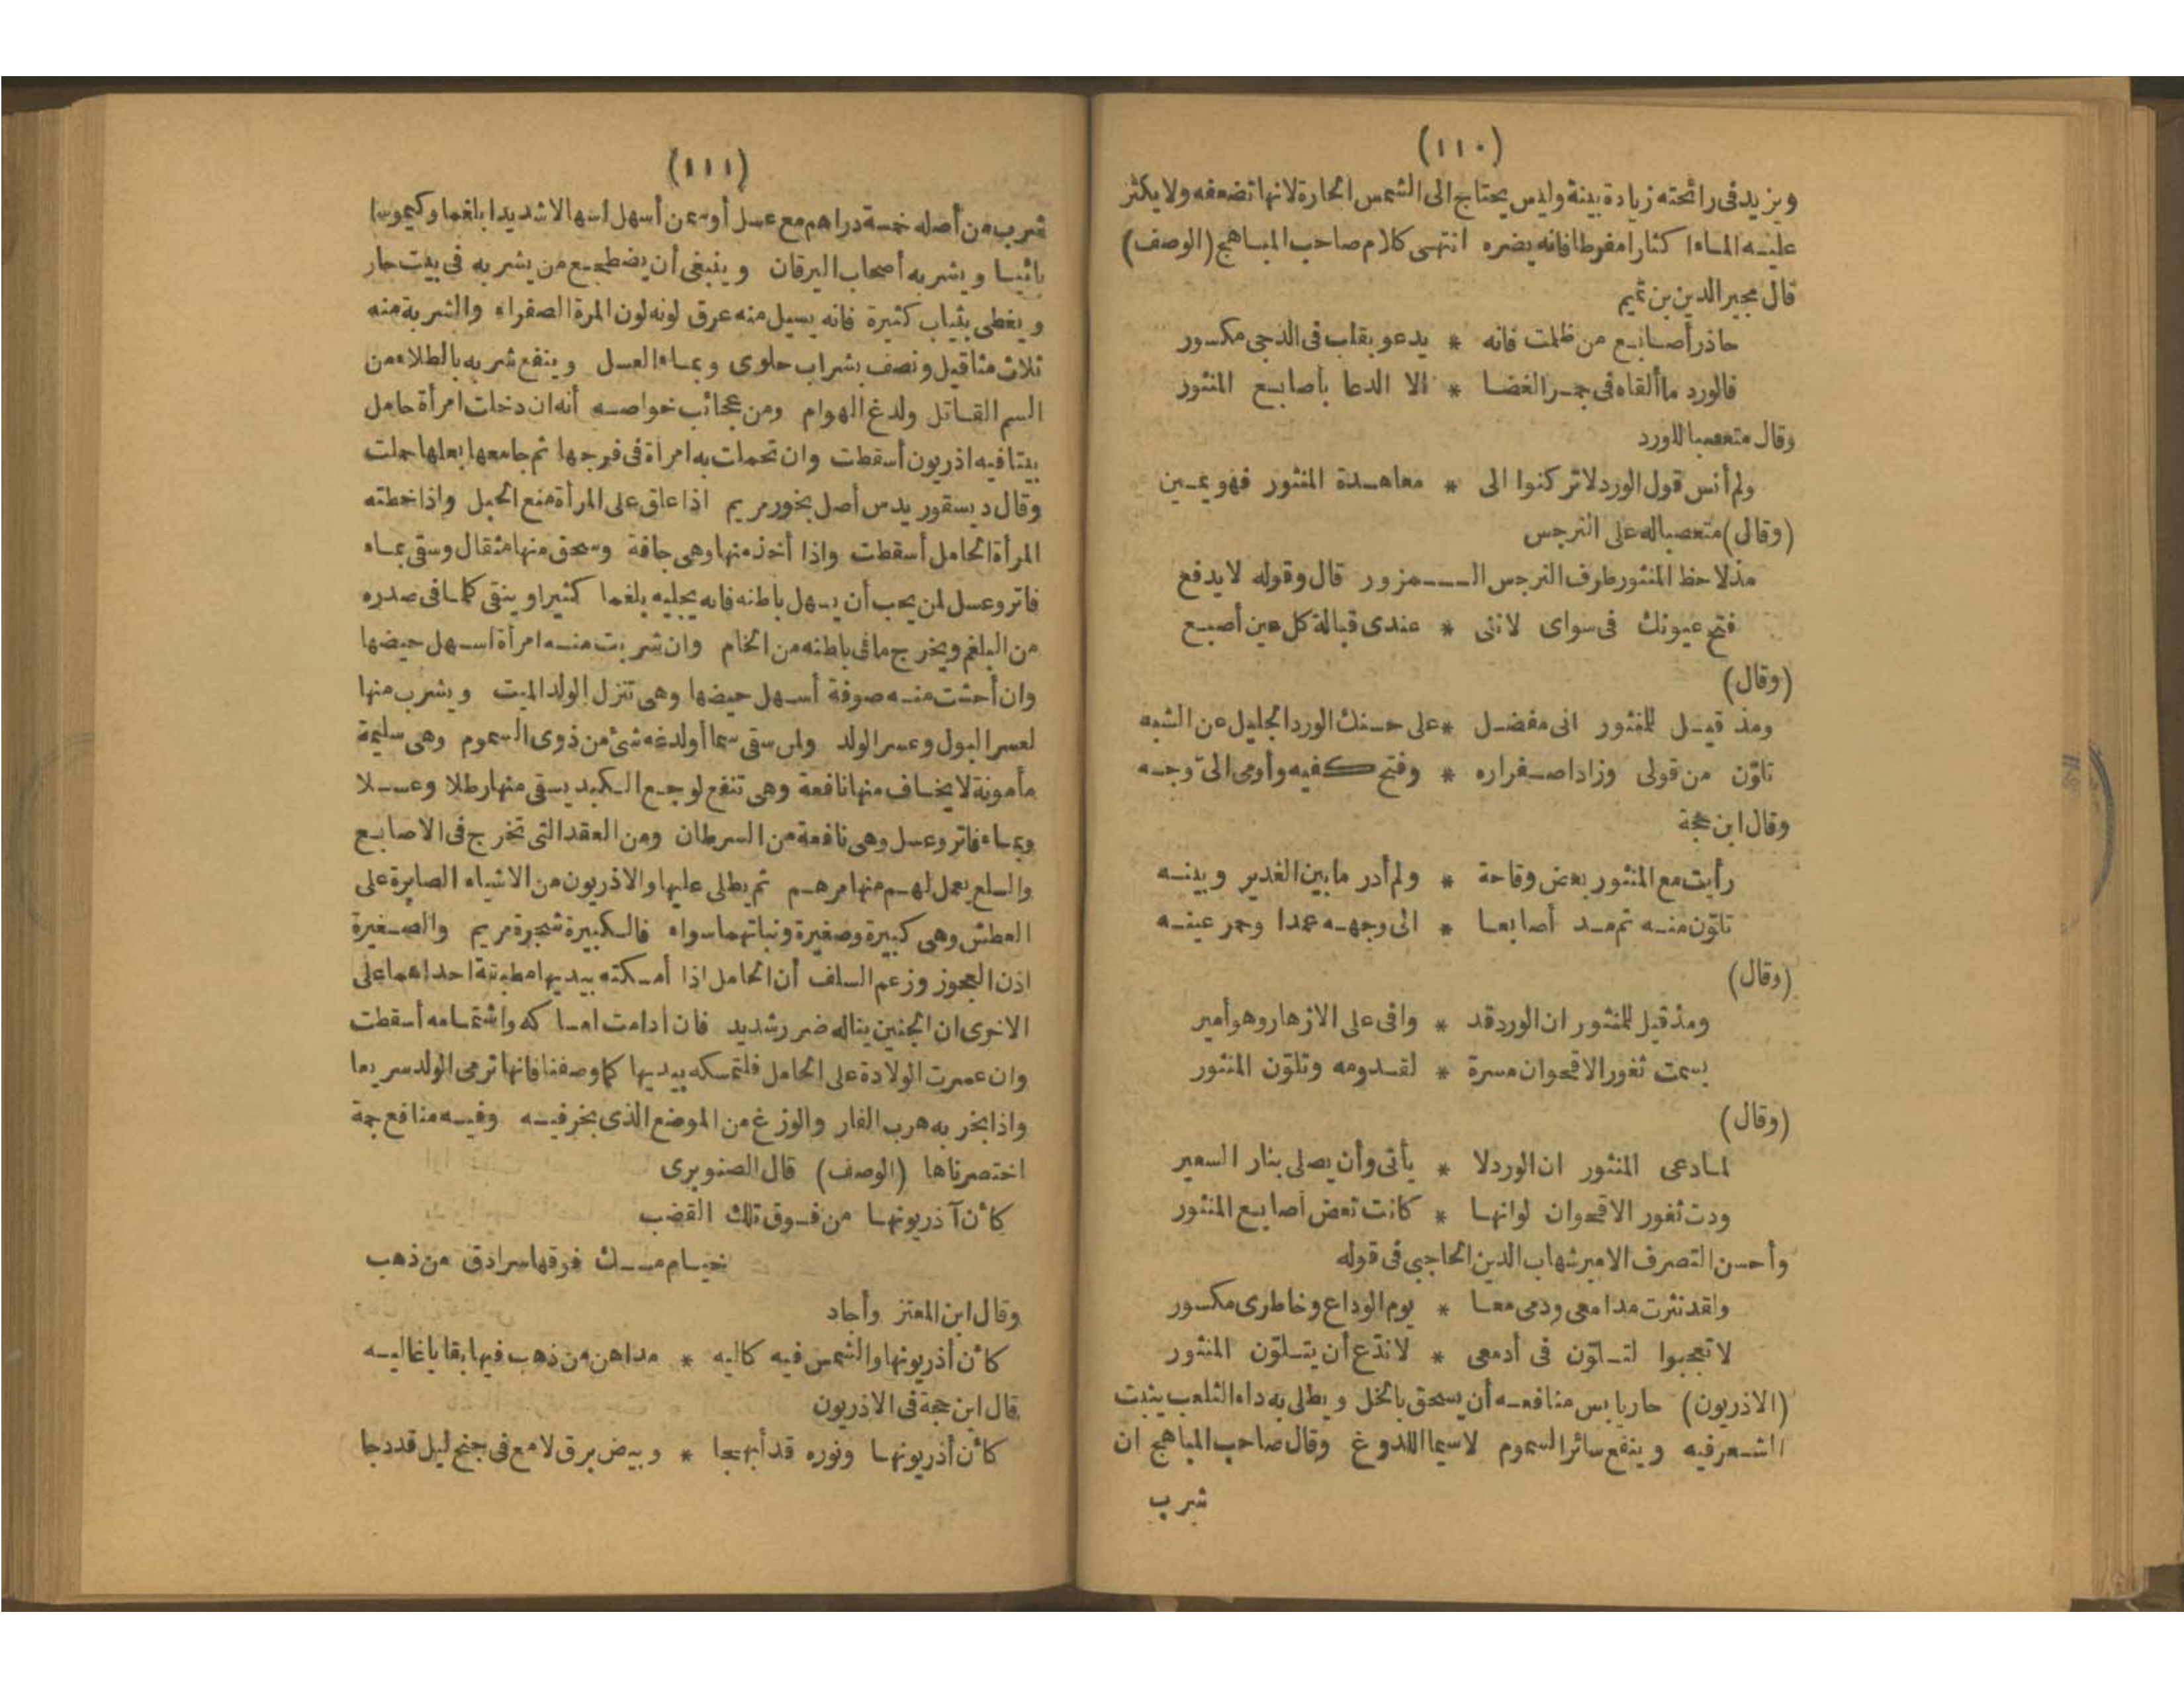 (١١٠)
ويزيد فى رائحته زيادة بينة وليس يحتاج الى الشمس الحارة لانها تضعفه ولا يكثر
عليه الماء اكثارا مفرطا فانه يضره انتهى كلام صاحب المباهج (الوصف)
قال مجير الدين بن تميم
حاذر أصابع من ظلمت فانه * يدعو بقلب فى الدجى مكسور
فالورد ما ألقاه فى جمر الغضا * الا الدعا بأصابع المنثور
وقال متعصبا للورد
ولم أنس قول الورد لا تركنوا الى * معاهدة المنثور فهو يمين
(وقال) متعصبا له على النرجس
مذ لاحظ المنثور طرف النرجس الـمزور قال وقوله لا يدفع
فتح عيونك فى سواى لاننى * عندى قبالة كل عين أصبع
(وقال)
ومذ قيل للمنثور انى مفضل * على حسنك الورد الجليل عن الشبه
تلون من قولى وزاد اصفراره * وفتح كفيه وأومى الى وجهه
وقال ابن حجة
رأيت مع المنثور بعض وقاحة * ولم أدر ما بين الغدير وبينه
تلون منه ثم مد أصابعا * الى وجهه عمدا وحمر عينه
(وقال)
ومذ قيل للمنثور ان الورد قد * وافى على الازهار وهو أمير
بسمت ثغور الاقحوان مسرة * لقدومه وتلون المنثور
(وقال)
لما دعى المنثور ان الورد لا * يأتى وأن يصلى بنار السعير
ودت ثغور الاقحوان لو انها * كانت تعض أصابع المنثور
وأحسن التصرف الامير شهاب الدين الحاجبى فى قوله
ولقد نثرت مدامعى ودمى معا * يوم الوداع وخاطرى مكسور
لا تعجبوا لتلون فى أدمعى * لا بدع أن يتلون المنثور
(الاذريون) حار يابس منافعه أن يسحق بالخل ويطلى به داء الثعلب ينبت
الشعر فيه وينفع سائر السموم لاسيما اللدوغ وقال صاحب المباهج ان
شرب
(١١١)
شرب من أصله خمسة دراهم مع عسل أو سمن أسهل اسهالا شديدا بلغما وكيموسا
مائيا ويشربه أصحاب اليرقان وينبغى أن يضطجع من يشربه فى بيت حار
ويغطى بثياب كثيرة فانه يسيل منه عرق لونه لون المرة الصفراء والشربة منه
ثلاث مثاقيل ونصف بشراب حلوى وبماء العسل وينفع شربه بالطلاء من
السم القاتل ولدغ الهوام ومن عجائب خواصه أنه ان دخلت امرأة حامل
بيتا فيه اذريون أسقطت وان تحملت به امرأة فى فرجها ثم جامعها بعلها حملت
وقال ديسقوريدس أصل بخور مريم اذا علق على المرأة منع الحبل واذا خطته
المرأة الحامل أسقطت واذا أخذ منها وهى جافة وسحق منها مثقال وسقى بماء
فاتر وعسل لمن يحب أن يسهل باطنه فانه يحليه بلغما كثيرا وينقى كلما فى صدره
من البلغم ويخرج ما فى باطنه من الخام وان شربت منه امرأة اسهل حيضها
وان أحشت منه صوفة أسهل حيضها وهى تنزل الولد الميت ويشرب منها
لعسر البول وعسر الولد ولمن سقى سما أو لدغه شئ من ذوى السموم وهى سليمة
مأمونة لا يخاف منها نافعة وهى تنفع لوجع الكبد يسقى منها رطلا وعسلا
وبماء فاتر وعسل وهى نافعة من السرطان ومن العقد التى تخرج فى الاصابع
والسلع يعمل لهم منها مرهم ثم يطلى عليها والاذريون من الاشياء الصابرة على
العطش وهى كبيرة وصغيرة ونباتهما سواء فالكبيرة شجرة مريم والصغيرة
اذن العجوز وزعم السلف أن الحامل اذا أمسكته بيديها مطبقة احداهما على
الاخرى ان الجنين يناله ضرر شديد فان أدامت امساكه واشتمامه أسقطت
وان عسرت الولادة على الحامل فلتمسكه بيديها كما وصفنا فانها ترمى الولد سريعا
واذا بخر به هرب الفار والوزغ من الموضع الذى بخر فيه وفيه منافع جمة
اختصرناها (الوصف) قال الصنوبرى
كأن آذريونها من فوق تلك القضب
خيام مسك فوقها سرادق من ذهب
وقال ابن المعتز وأجاد
كأن أذريونها والشمس فيه كاليه * مداهن من ذهب فيها بقايا غاليه
قال ابن حجة فى الاذريون
كأن أذريونها ونوره قد أبهجا * وبيض برق لامع فى جنح ليل قد دجا